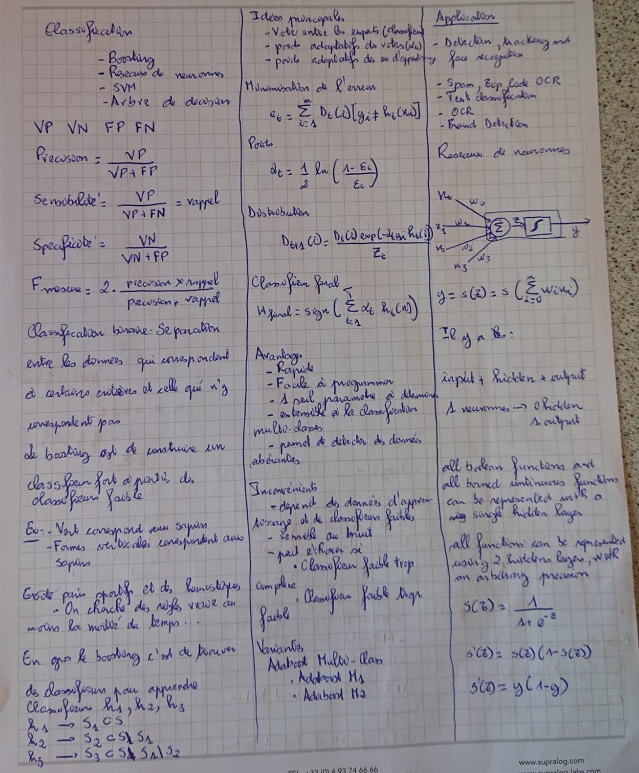 Classification
- Boosting
- Reseaux de neuronnes
- SVM
- Arbre de decision
VP VN FP FN
Precision = VP / (VP + FP)
Sensibilité = VP / (VP + FN) = rappel
Specificité = VN / (VN + FP)
F-mesure = 2 . (precision x rappel) / (precision + rappel)
Classification binaire: Séparation
entre les données qui correspondent
à certains critères et celle qui n'y
correspondent pas
Le boosting est de construire un
classifieur fort à partir de
classifieurs faible
Ex: - Vert correspond aux sapins
- Formes verticales correspondent aux
sapins
- On cherche des règles vraie au
moins la moitié du temps...
En gros le boosting c'est de trouver
des classifieurs pour apprendre
Classifieurs h1, h2, h3
h1 → S1 ⊂ S
h2 → S2 ⊂ S\S1
h3 → S3 ⊂ S\S1\S2
Idées principales
- Vote entre les experts (classifieur)
- poids adaptatifs des votes
- poids adaptatifs des
Minimisation de l'erreur
et = Σ i=1 m Dt(i)[yi ≠ ht(xi)]
Poids
αt = 1/2 ln((1-εt)/εt)
Distribution
Dt+1(i) = Dt(i) exp(-αt yi ht(xi)) / Zt
Classifieur final
H final = sign(Σ t=1 T αt ht(x))
Avantages
- Rapide
- Facile à programmer
- 1 seul paramètre à déterminer
- à la classification
multi-classes
- permet de detecter des données
abérantes
Inconvénients
- depend des données d'appren-
tissage et de classifieurs faibles
- sensible au bruit
- peut échouer si
• Classifieur faible trop
complexe
• Classifieur faible trop
faible
Variantes
Adaboost Multi-Class
• Adaboost M1
• Adaboost M2
Application
- Detection, tracking and
face recognition
- Spam, Zip Code OCR
- Text classification
- OCR
- Fraud Detection
Reseaux de neuronnes
x0 w0
x1 w1
x2 w2
x3 w3
Σ z ∫ y
y = s(z) = s(Σ i=0 n wixi)
Il y a :
input + hidden + output
1 neuronnes → 0 hidden
1 output
all boolean functions and
all borned continuous functions
can be represented with a
single hidden layer
all functions can be represented
using 2 hiddens layer, with
an arbitrary precision
s(z) = 1 / (1 + e^-z)
s'(z) = s(z)(1-s(z))
s'(z) = y(1-y)
www.supralog.com